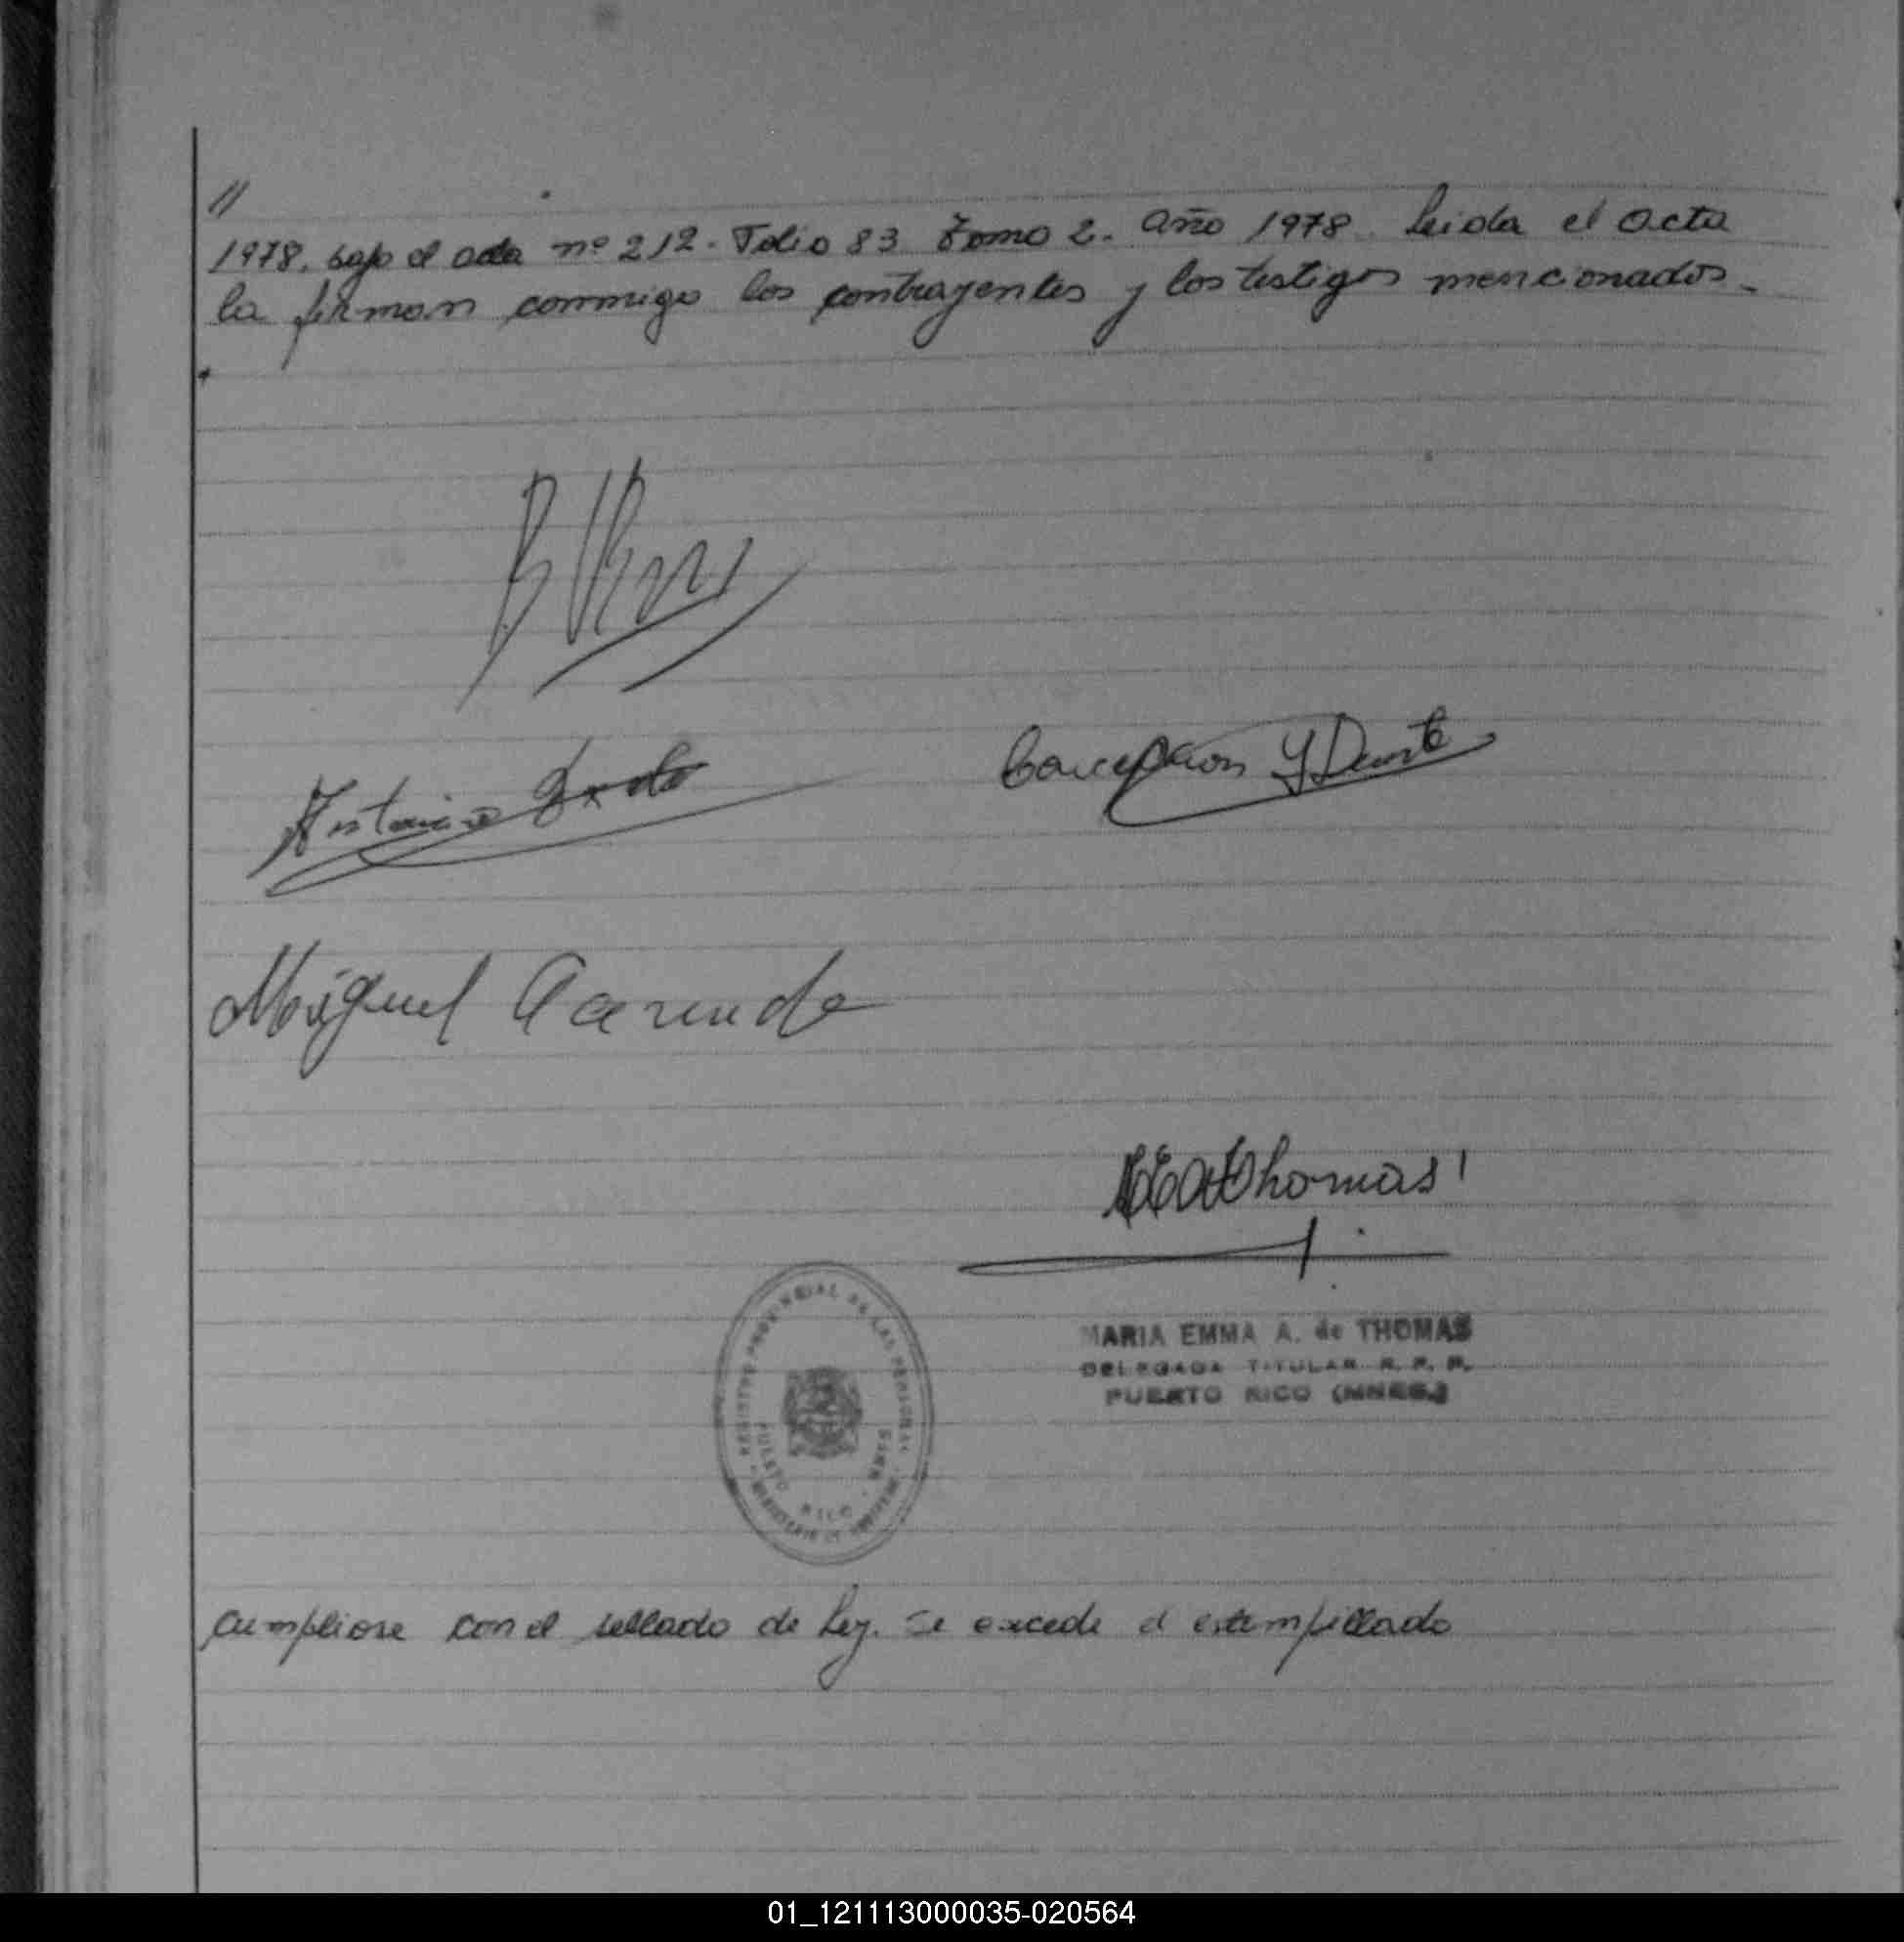 //
1978. bajo el acta nº 212. Folio 83 Tomo 2. Año 1978. Leida el acta
la firman conmigo los contrayentes y los testigos mencionados.-
Concepcion Y Duarte
Miguel
Thomas
MARIA EMMA A. de THOMAS
DELEGADA TITULAR R. P. P.
PUERTO RICO (MNES.)
REGISTRO PROVINCIAL DE LAS PERSONAS
PUERTO RICO MNES
cumpliose con el sellado de Ley. Se excede el estampillado
01_121113000035-020564